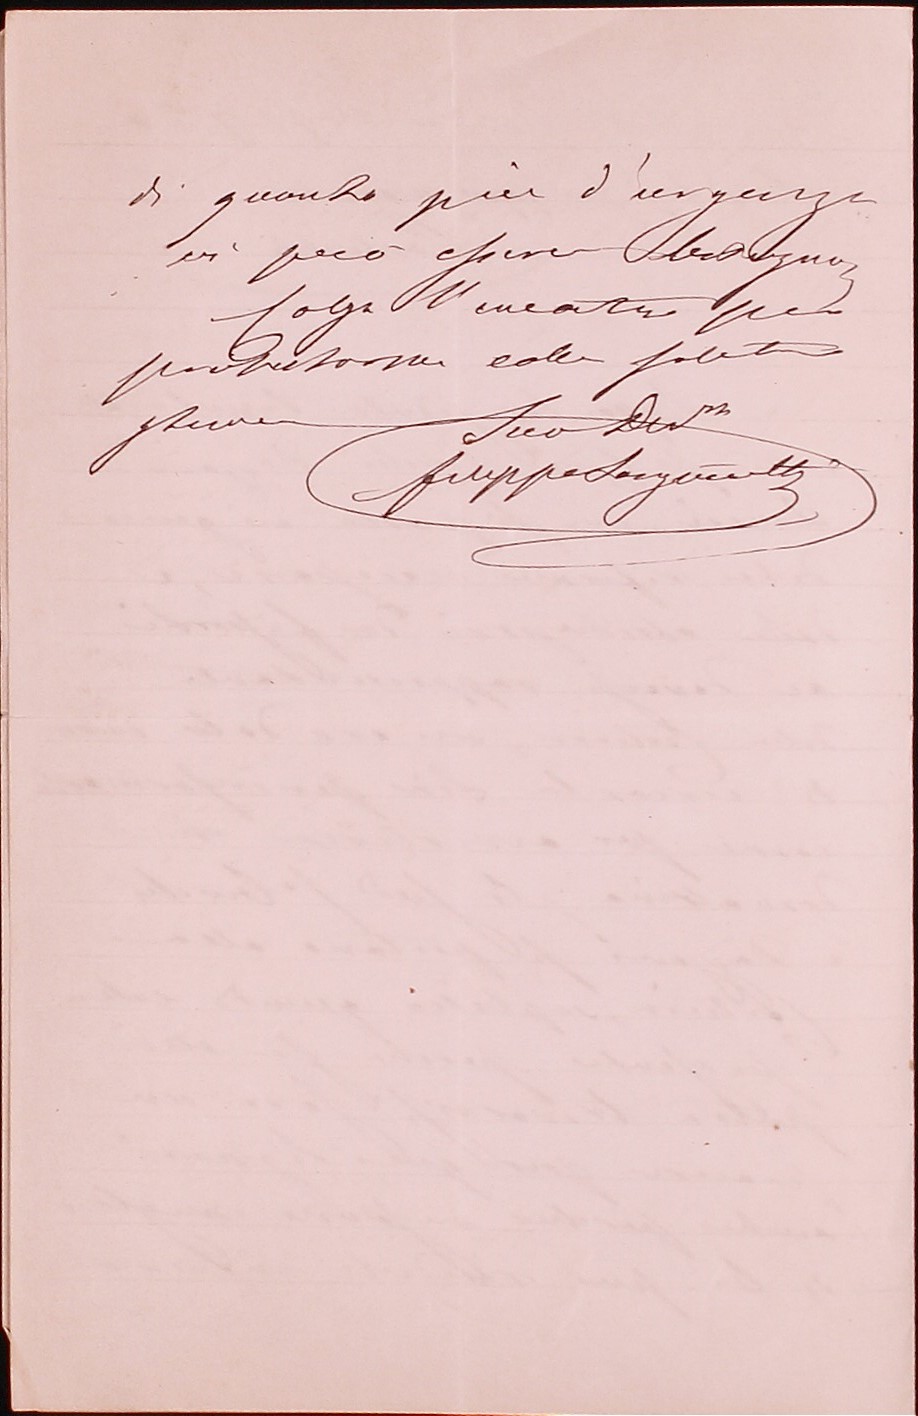 di quanto più d'urgenza
vi può essere bisogno
Colgo l'incontro per
protestarmi colla solita
stima
Suo Dev.mo
Filippo Sanguinetti